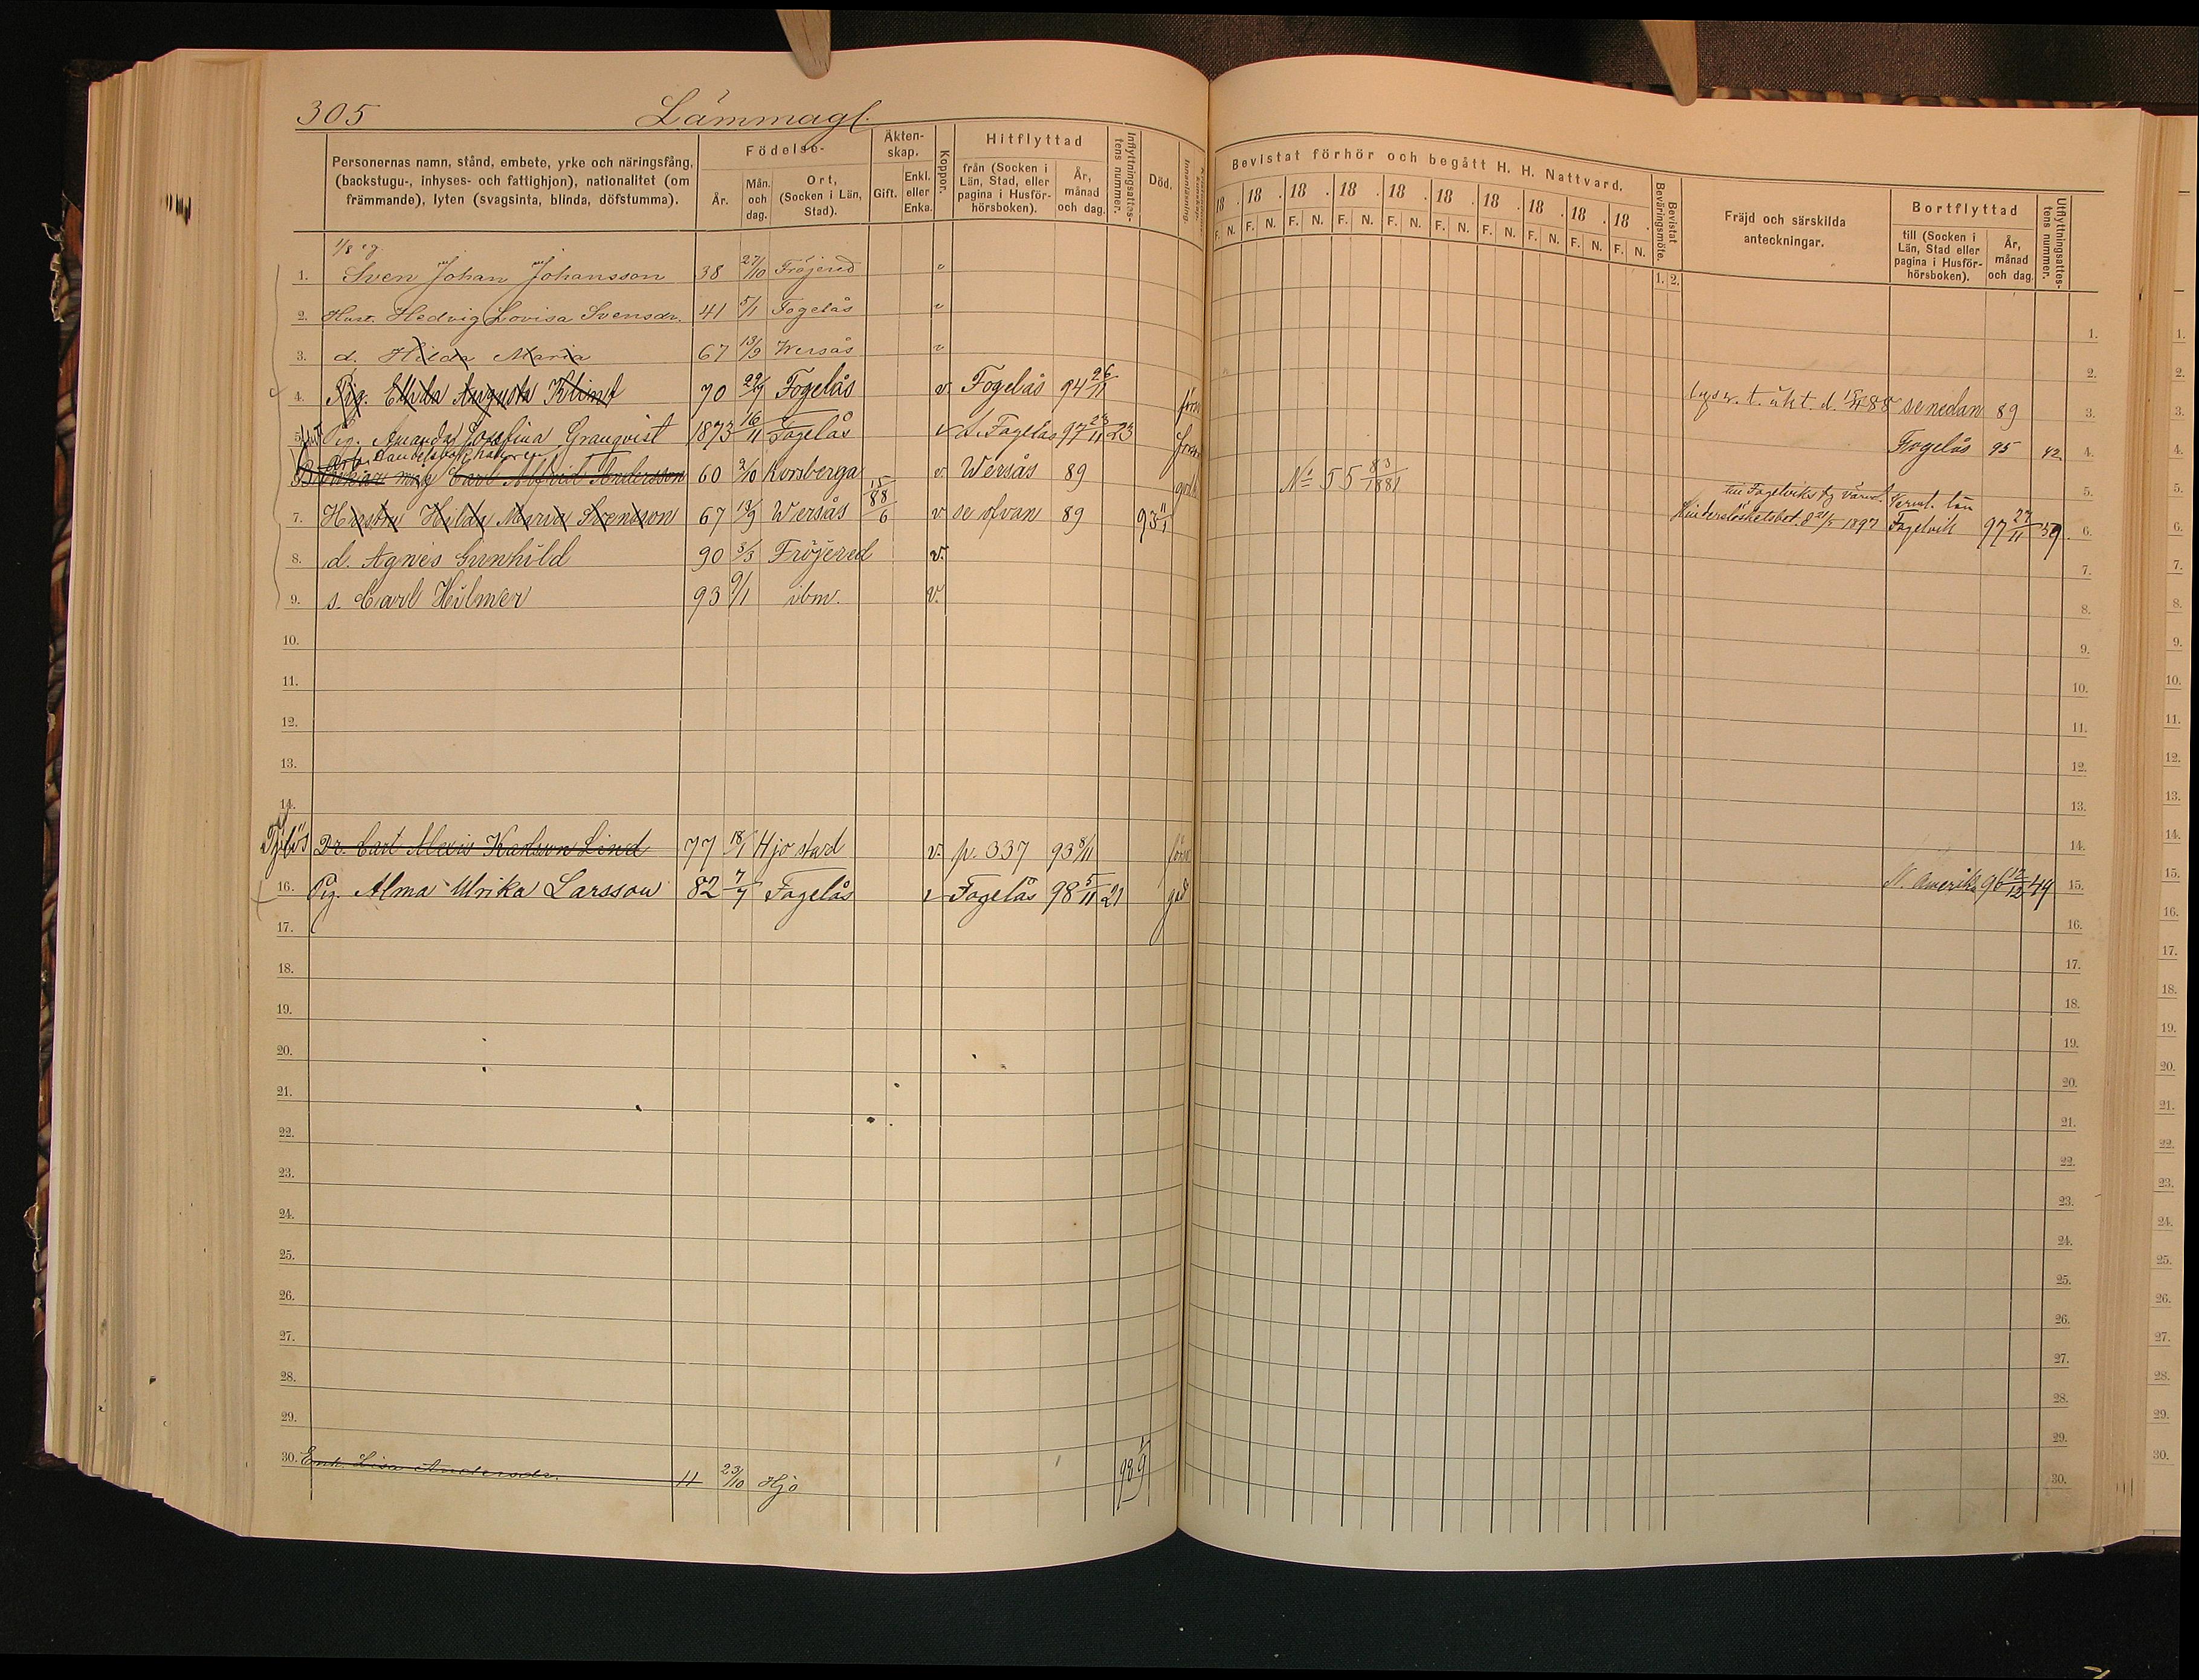 305 Lämmagl.
Personernas namn, stånd, embete, yrke och näringsfång, (backstugu-, inhyses- och fattighjon), nationalitet (om främmande), lyten (svagsinta, blinda, döfstumma).
Födelse-
År. Mån. och dag. Ort, (Socken i Län, Stad).
Äktenskap.
Gift. Enkl. eller Enka.
Koppor.
Hitflyttad
från (Socken i Län, Stad, eller pagina i Husförhörsboken). År, månad och dag.
Inflyttningsattestens nummer.
Död.
Innanläsning.
Bevistat förhör och begått H. H. Nattvard.
18 . 18 . 18 . 18 . 18 . 18 . 18 . 18 . 18 . 18 .
F. N. F. N. F. N. F. N. F. N. F. N. F. N. F. N. F. N. F. N.
Bevistat Beväringsmöte.
1. 2.
Fräjd och särskilda anteckningar.
Bortflyttad
till (Socken i Län, Stad eller pagina i Husförhörsboken). År, månad och dag.
Utflyttningsattestens nummer.
1/8 eg.
1. Sven Johan Johansson 38 27/10 Fröjered v 1.
2. Hust. Hedvig Lovisa Svensdr. 41 5/1 Fogelås v 2.
3. d. Hilda Maria 67 13/9 Wersås v t. äkt. d. 88 se nedan 89 3.
4. Pig. Augusta Klint 70 29/9 Fogelås v. Fogelås 94 26/11 Fogelås 95 42 4.
5. Pig. Amanda Josefina Granqvist 1873 16/11 Fogelås v Fogelås 97 23/11 23 5.
Carl Alfrid Andersson 60 2/10 Korsberga v. Wersås 89 No 55 83/1881 Hinderslöshetsbet. 1897 Fogelvik 97 27/11 59 6.
7. Hustru Hilda Maria Svensson 67 13/9 Wersås 15/6 88 v se ofvan 89 93 11/1 7.
8. d. Agnes Gunhild 90 3/3 Fröjered v. 8.
9. s. Carl Hilmer 93 9/1 ibm. v. 9.
10. 10.
11. 11.
12. 12.
13. 13.
14. 14.
Dr. Carl Alexis Karlsson Lind 77 18/1 Hjo stad v. p. 337 93 8/11 N. Amerika 96 12/12 49 15.
16. Pig. Alma Ulrika Larsson 82 7/7 Fogelås v Fogelås 98 5/11 21 god 16.
17. 17.
18. 18.
19. 19.
20. 20.
21. 21.
22. 22.
23. 23.
24. 24.
25. 25.
26. 26.
27. 27.
28. 28.
29. 29.
30. Enk. Lisa Andersdr. 11 23/10 Hjo 30.